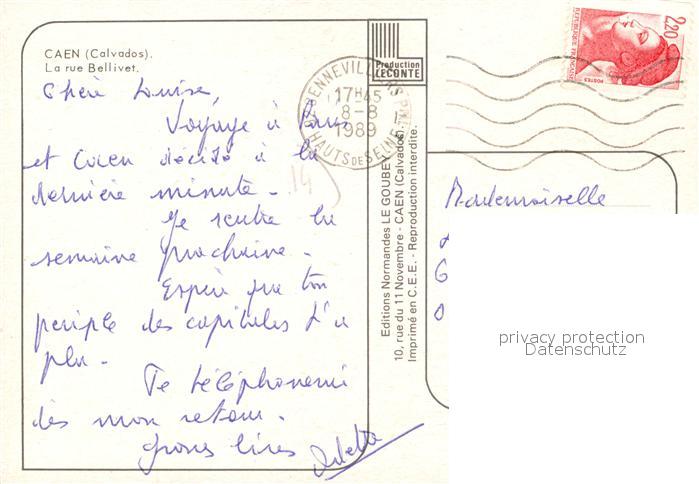 CAEN (Calvados).
La rue Bellivet.
Chère Louise,
Voyage à Paris
et Caen décidé à la
dernière minute.
Je rentre la
semaine prochaine.
Espère que ton
periple des capitales t'a
plu.
Te téléphonerai
dès mon retour.
Grosses bises
Odette
Production
LECONTE
GENNEVILLIERS PPAL
17H45
8-8
1989
HAUTS DE SEINE
19
Editions Normandes LE GOUBEY
10, rue du 11 Novembre - CAEN (Calvados).
Imprimé en C.E.E. - Reproduction interdite.
2,20
REPUBLIQUE FRANÇAISE
POSTES
Mademoiselle
privacy protection
Datenschutz